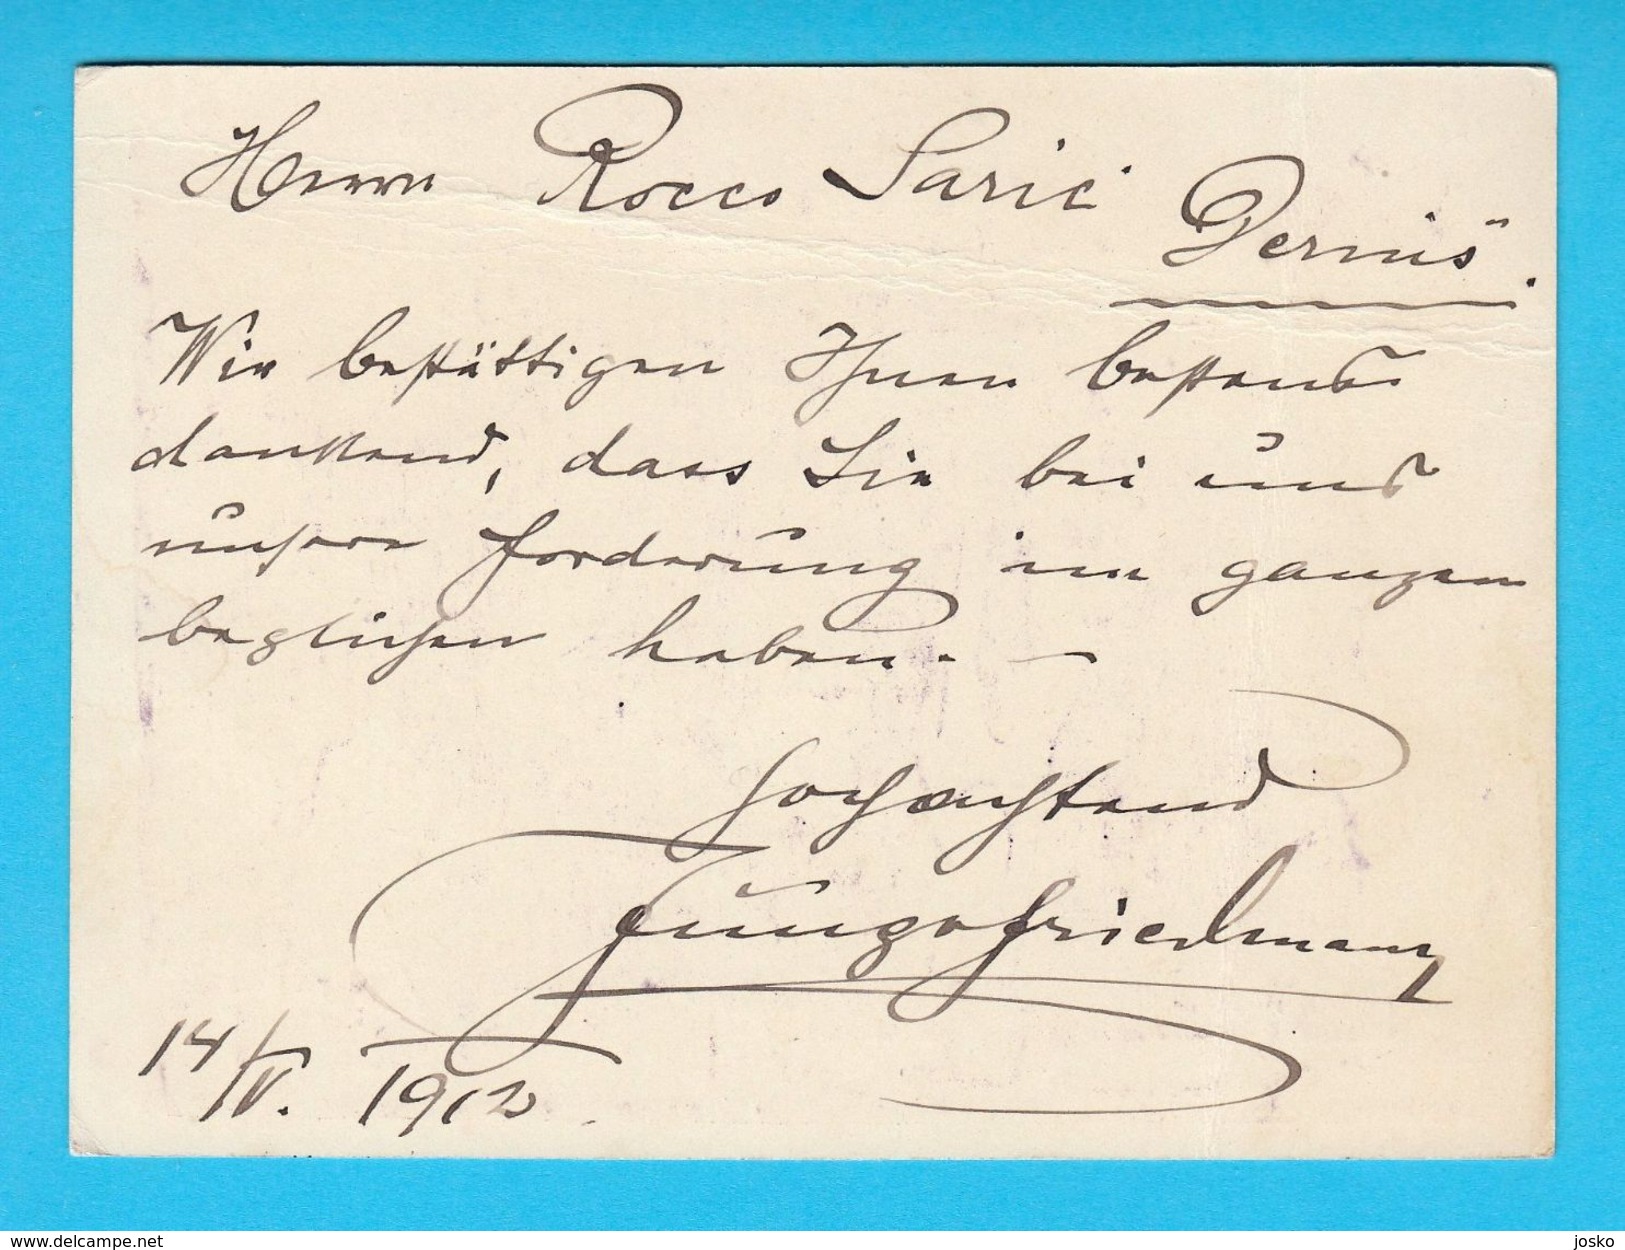 Herrn Rocco Saric
Derniš.
Wir bestättigen Ihnen bestens
dankend, dass Sie bei uns
unsere Forderung im ganzen
beglichen haben. —
Hochachtend
14/V. 1912
www.delcampe.net
josko